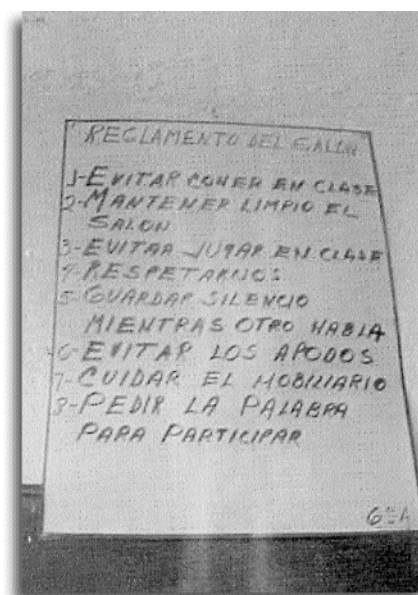 REGLAMENTO DEL SALON
1-EVITAR COMER EN CLASE
2-MANTENER LIMPIO EL
SALON
3-EVITAR JUGAR EN CLASE
4-RESPETARNOS
5-GUARDAR SILENCIO
MIENTRAS OTRO HABLA
6-EVITAR LOS APODOS
7-CUIDAR EL MOBILIARIO
8-PEDIR LA PALABRA
PARA PARTICIPAR
6ºA